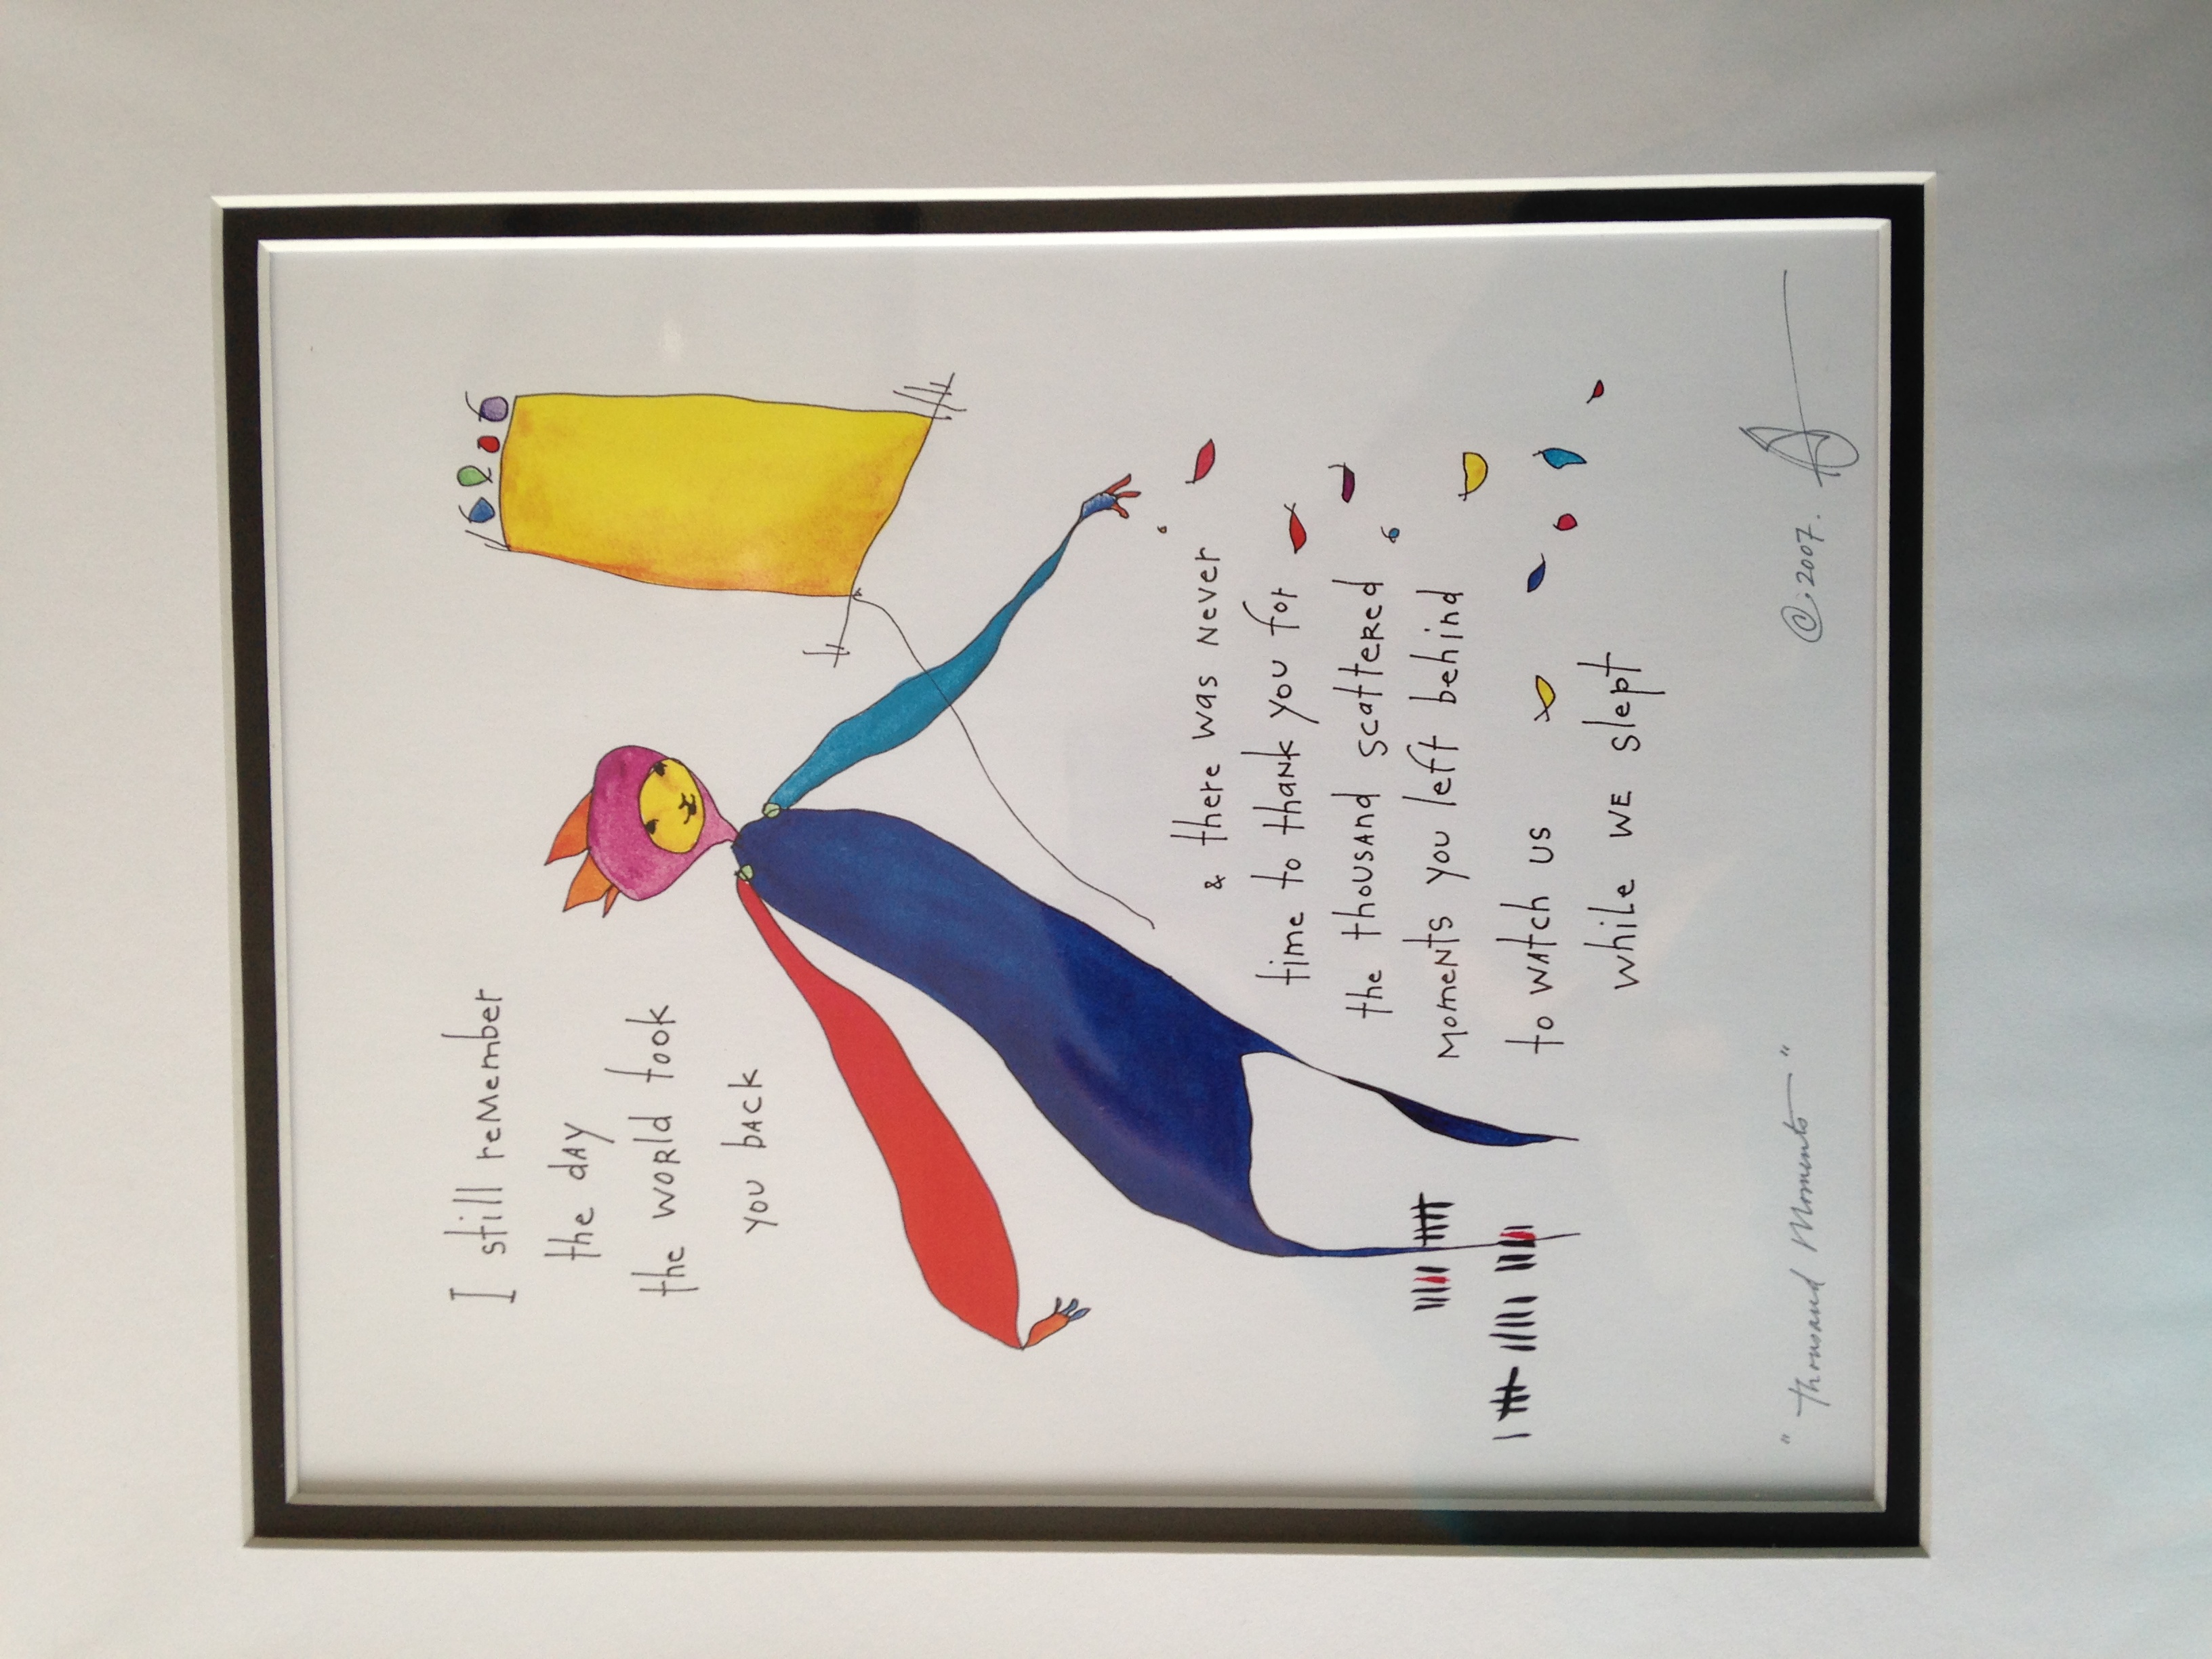 I still remember
the day
the world took
you back
& there was never
time to thank you for
the thousand scattered
moments you left behind
to watch us
while we slept
"Thousand Moments"
©.2007.